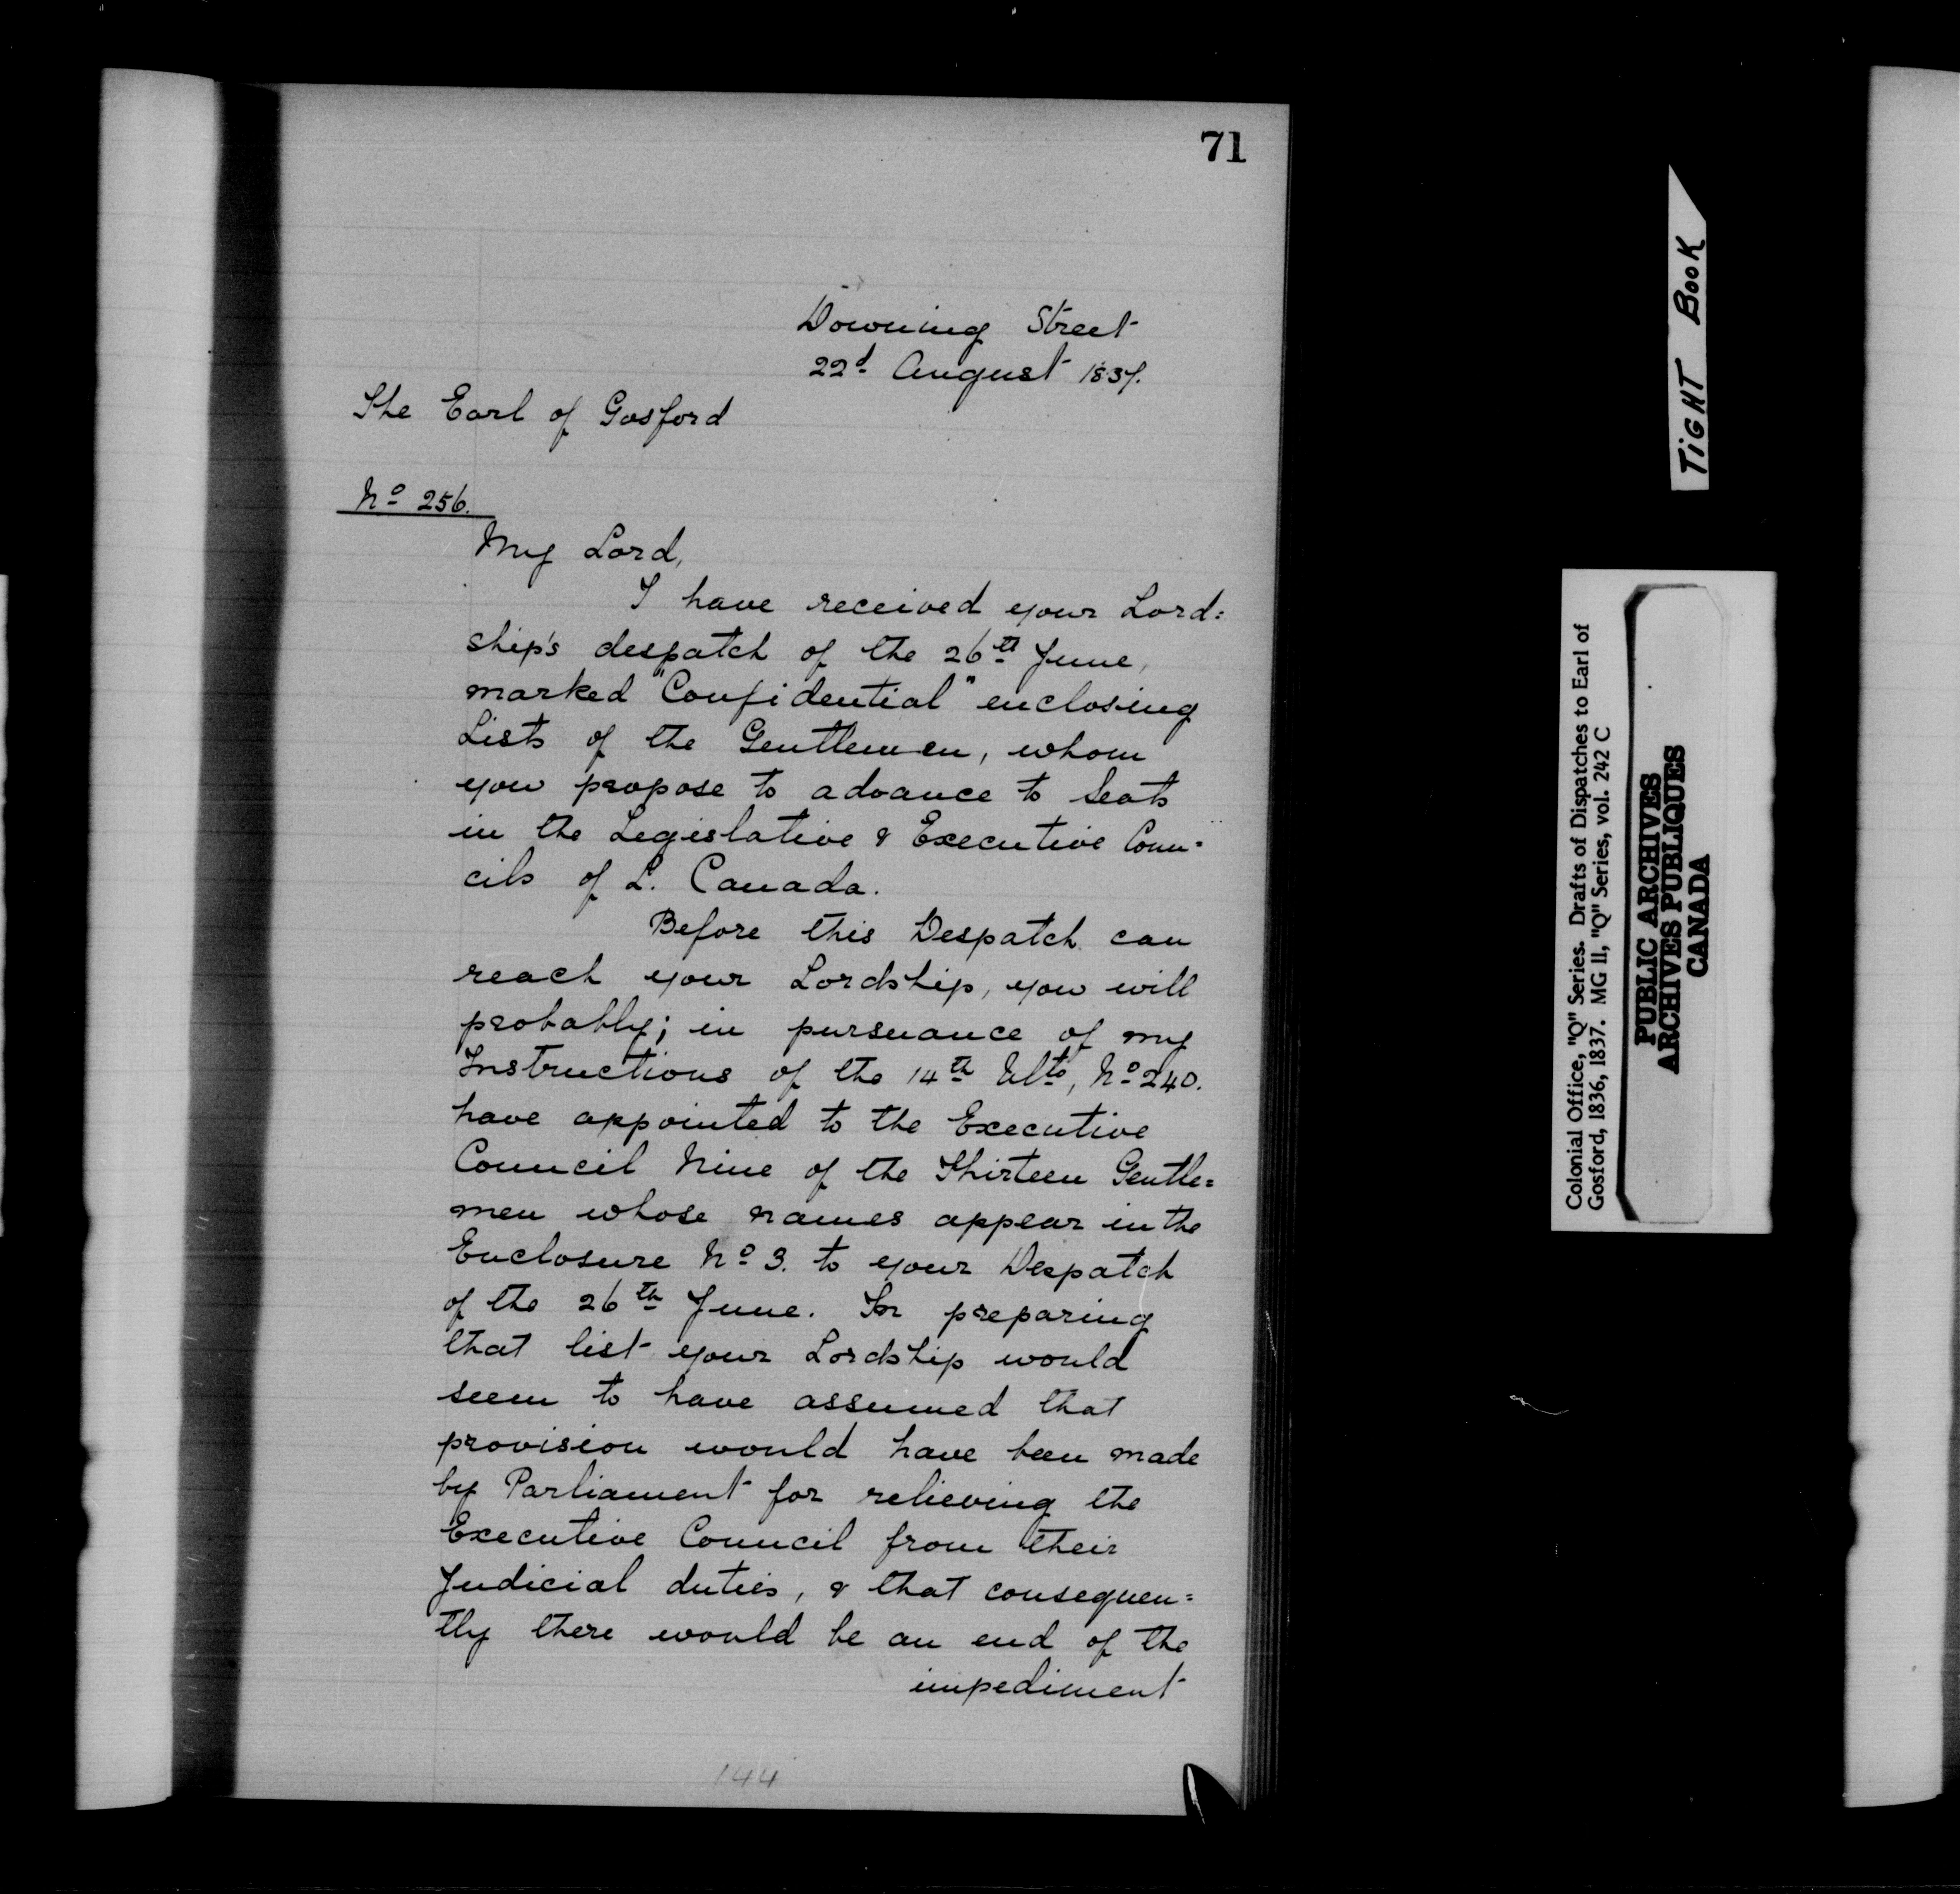 71
Downing Street
22d August 1837.
The Earl of Gosford
No 256.
My Lord,
I have received your Lord=
ship's despatch of the 26th June,
marked "Confidential" enclosing
Lists of the Gentlemen, whom
you propose to advance to Seats
in the Legislative & Executive Coun=
cils of L. Canada.
Before this Despatch can
reach your Lordship, you will
probably; in pursuance of my
Instructions of the 14th Ulto, No 240.
have appointed to the Executive
Council Nine of the Thirteen Gentle=
men whose names appear in the
Enclosure No 3. to your Despatch
of the 26th June. In preparing
that list your Lordship would
seem to have assumed that
provision would have been made
by Parliament for relieving the
Executive Council from their
Judicial duties, & that consequen=
tly there would be an end of the
impediment
144
TIGHT BOOK
Colonial Office, "Q" Series. Drafts of Dispatches to Earl of
Gosford, 1836, 1837. MG 11, "Q" Series, vol. 242 C
PUBLIC ARCHIVES
ARCHIVES PUBLIQUES
CANADA